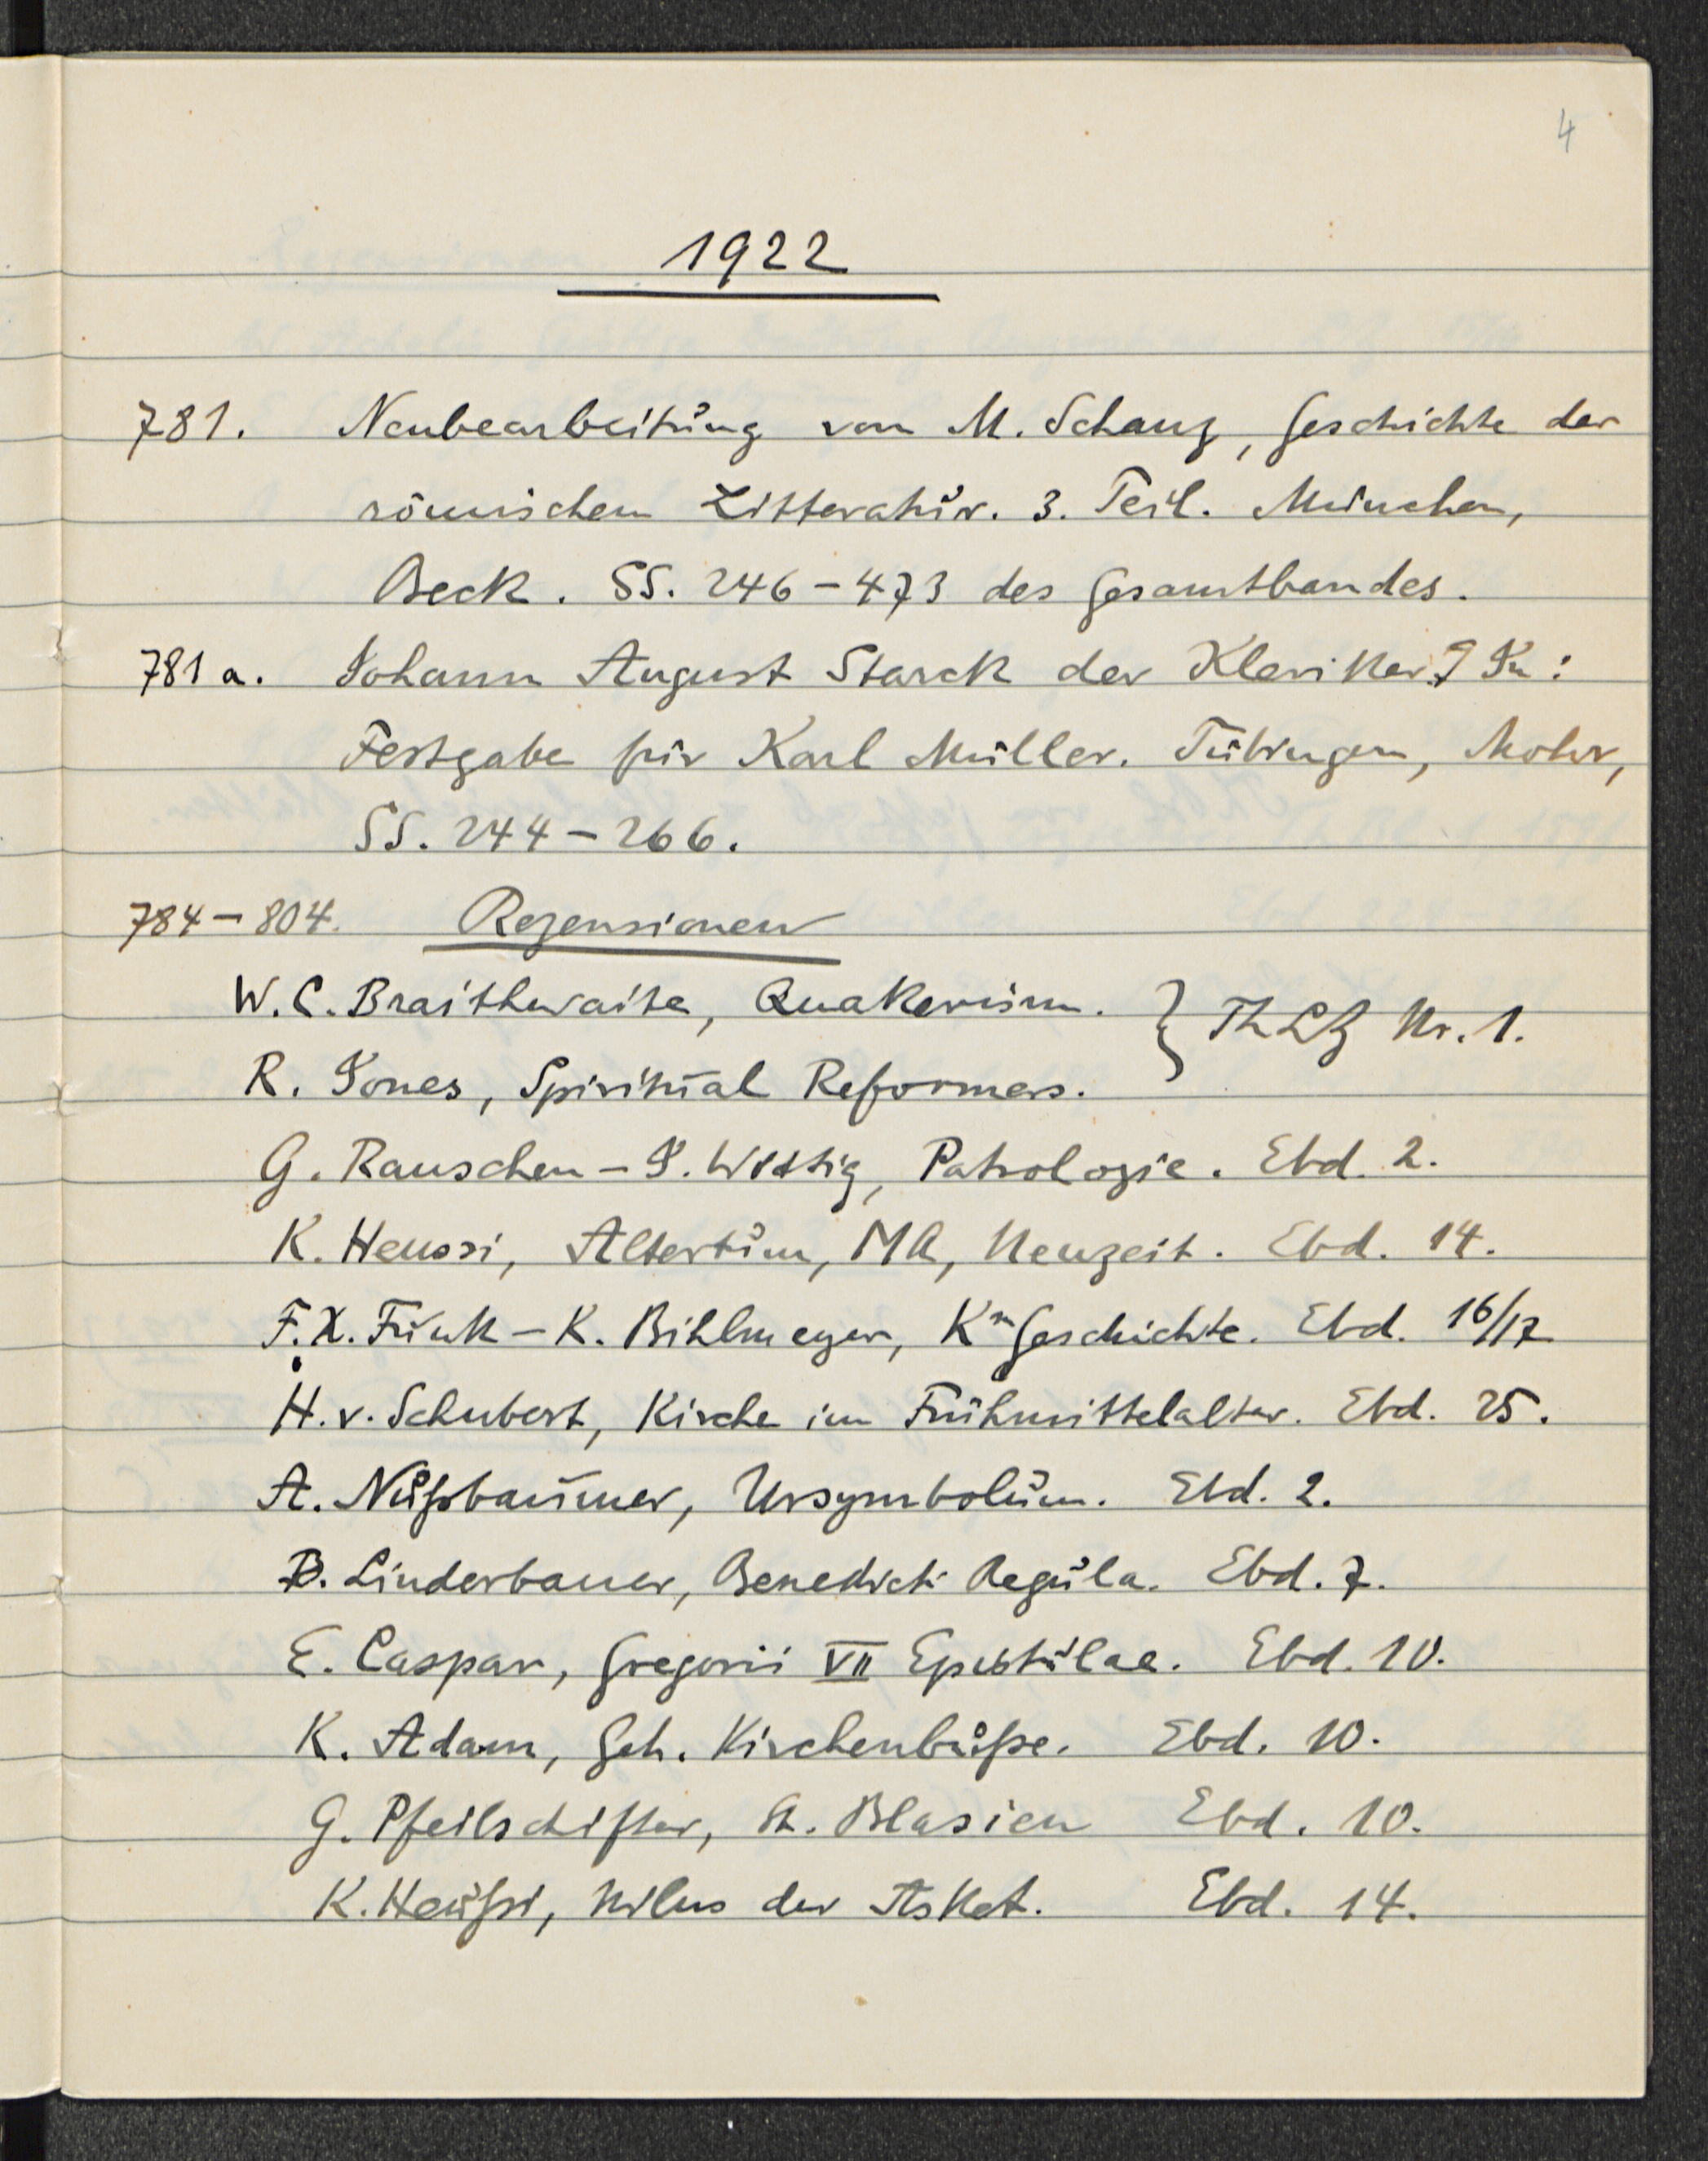 4
1922
781. Neubearbeitung von M. Schanz, Geschichte der
römischen Litteratur. 3. Teil. München,
Beck. SS. 246-473 des Gesamtbandes.
781 a. Johann August Starck der Kleriker. In:
Festgabe für Karl Müller. Tübingen, Mohr,
SS. 244-266.
784-804. Rezensionen
W. C. Braithwaite, Quakerism. } ThLZ Nr. 1.
R. Jones, Spiritual Reformers.
G. Rauschen - J. Wittig, Patrologie. Ebd. 2.
K. Heussi, Altertum, MA, Neuzeit. Ebd. 14.
F. X. Funk - K. Bihlmeyer, Kⁿgeschichte. Ebd. 16/17
H. v. Schubert, Kirche im Frühmittelalter. Ebd. 25.
A. Nußbaumer, Ursymbolum. Ebd. 2.
B. Linderbauer, Benedicti Regula. Ebd. 7.
E. Caspar, Gregorii VII Epistulae. Ebd. 10.
K. Adam, Geh. Kirchenbuße. Ebd. 10.
G. Pfeilschifter, St. Blasien Ebd. 10.
K. Heußi, Nilus der Asket. Ebd. 14.